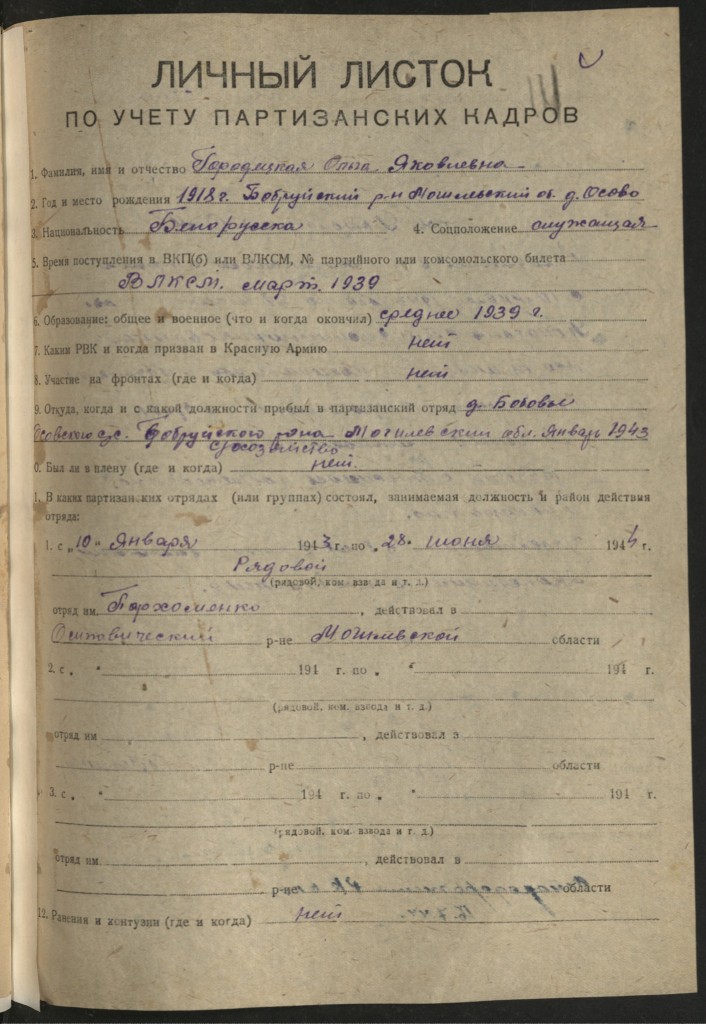 ЛИЧНЫЙ ЛИСТОК
ПО УЧЕТУ ПАРТИЗАНСКИХ КАДРОВ
1. Фамилия, имя и отчество Городецкая Ольга Яковлевна
2. Год и место рождения 1918 г. Бобруйский р-н Могилевский об. д. Осово
3. Национальность Белорусска 4. Соцположение служащая
5. Время поступления в ВКП(б) или ВЛКСМ, № партийного или комсомольского билета
ВЛКСМ. март. 1939
6. Образование: общее и военное (что и когда окончил) среднее 1939 г.
7. Каким РВК и когда призван в Красную Армию нет
8. Участие на фронтах (где и когда) нет
9. Откуда, когда и с какой должности прибыл в партизанский отряд д.
Осовского с/с. Бобруйского р-на Могилевский обл. Январь 1943
0. Был ли в плену (где и когда) нет.
1. В каких партизанских отрядах (или группах) состоял, занимаемая должность и район действия
отряда:
1. с „10" Января 1943 г. по „28" июня 1944 г.
Рядовой
(рядовой, ком. взвода и т. д.)
отряд им. Пархоменко, действовал в
Осиповический р-не Могилевской области
2. с „ " 194 г. по „ " 194 г.
(рядовой, ком. взвода и т. д.)
отряд им , действовал в
р-не области
3. с „ " 194 г. по „ " 194 г.
(рядовой, ком. взвода и т. д.)
отряд им. , действовал в
р-не области
12. Ранения и контузии (где и когда) нет